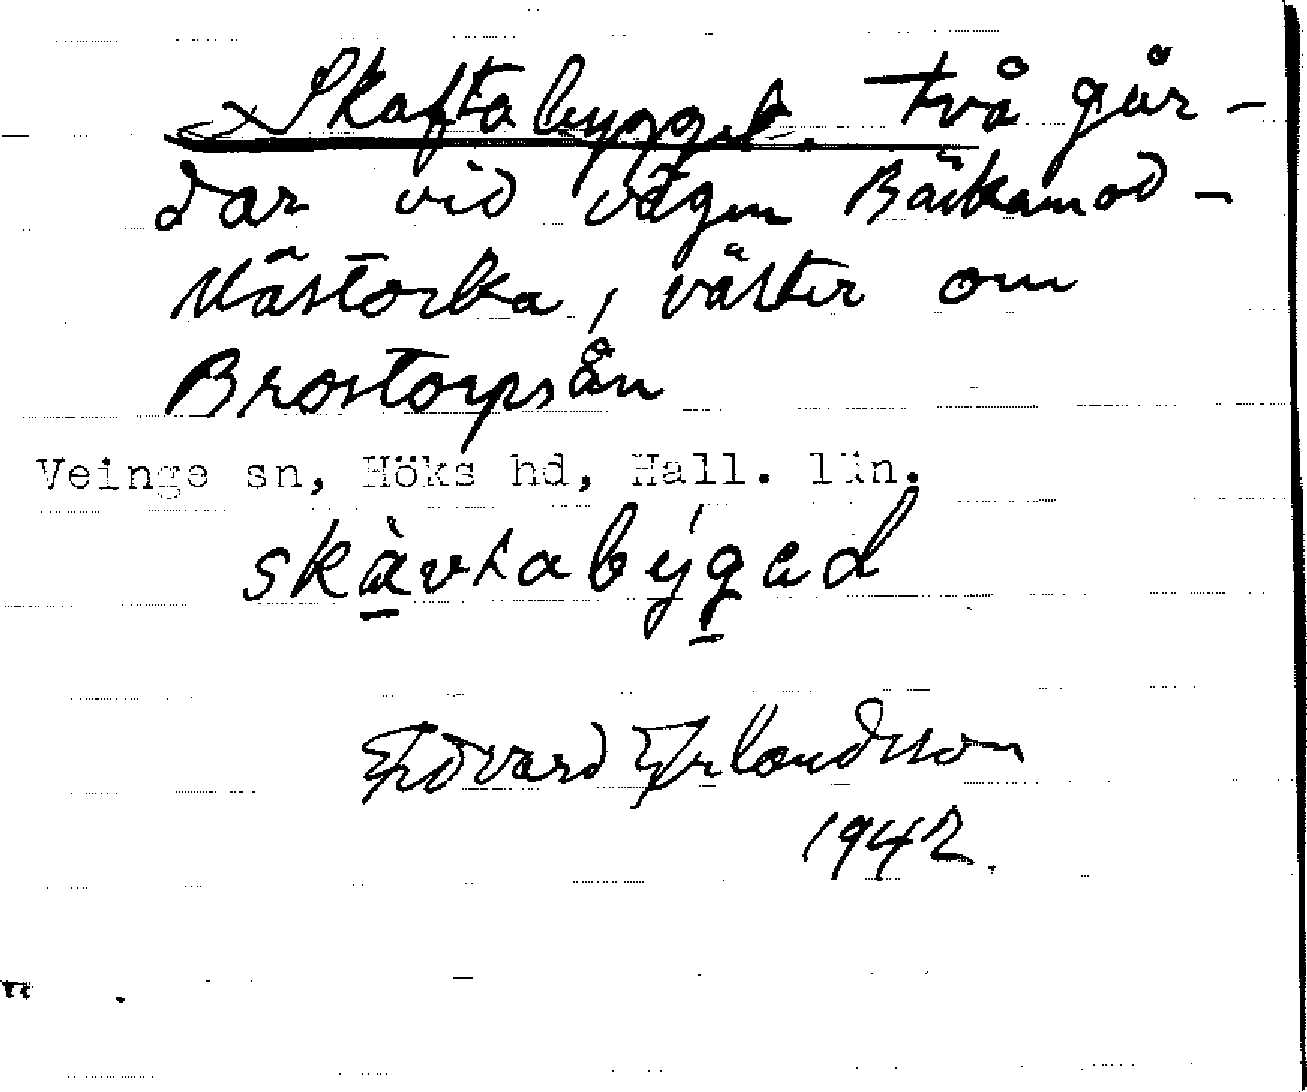 Skaftabygget. Två går-
dar vid vägen Bäckamod-
Mästocka, väster om
Brostorpsån
Veinge sn, Höks hd, Hall. län.
skàvtabýgad
Edvard Erlandsson
1942.